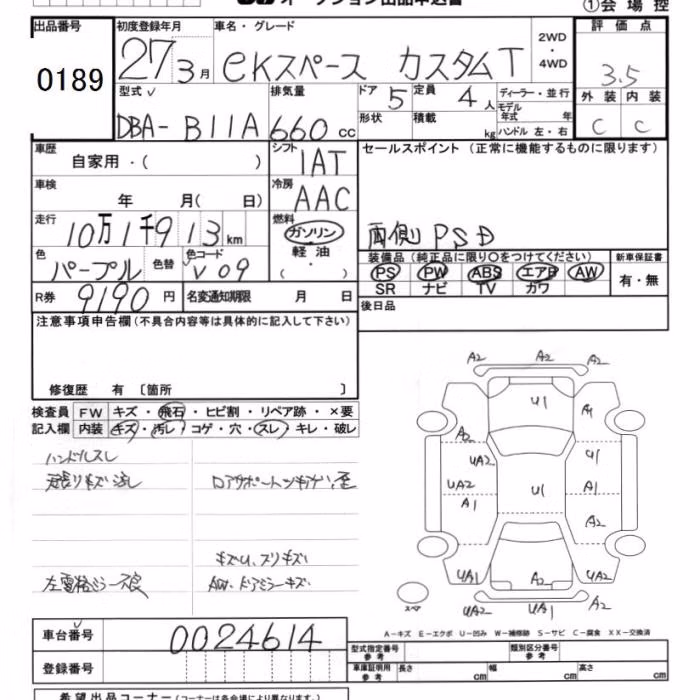 オークション出品申込書
①会場控
出品番号 0189
初度登録年月 27 3月
車名・グレード eKスペース カスタムT
2WD・4WD
評価点 3.5
外装 C 内装 C
型式 DBA-B11A
排気量 660 cc
ドア 5 定員 4人
形状 積載 kg
ディーラー・並行
モデル年式 年
ハンドル 左・右
車歴 自家用・( )
シフト 1AT
セールスポイント (正常に機能するものに限ります)
両側PSD
車検 年 月( 日)
冷房 AAC
走行 10万1千913km
燃料 ガソリン 軽油・( ・ )
色 パープル 色替 色コード V09
装備品(純正品に限り○をつけてください)
PS PW ABS エアB AW
SR ナビ TV カワ
新車保証書 有・無
R券 9190円 名変通知期限 月 日
後日品
注意事項申告欄(不具合内容等は具体的に記入して下さい)
修復歴 有 〔箇所 〕
検査員 FW キズ・飛石・ヒビ割・リペア跡・×要
記入欄 内装 キズ・汚レ・コゲ・穴・スレ・キレ・破レ
ハンドルスレ
キズU、スリキズ
AW、ドアミラーキズ
A2 A2 A2
U1 A1
A2
UA2 U1
UA2 U1 A1
A1
A2
UA1 A2 UA2
UA2 UA1 A2
スペア
A-キズ E-エクボ U-凹み W-補修跡 S-サビ C-腐食 XX-交換済
車台番号 0024614
登録番号
型式指定番号 参考 類別区分番号 参考
車庫証明用 参考 長さ cm 幅 cm 高さ cm
希望出品コーナー(コーナーは各会場により異なります)